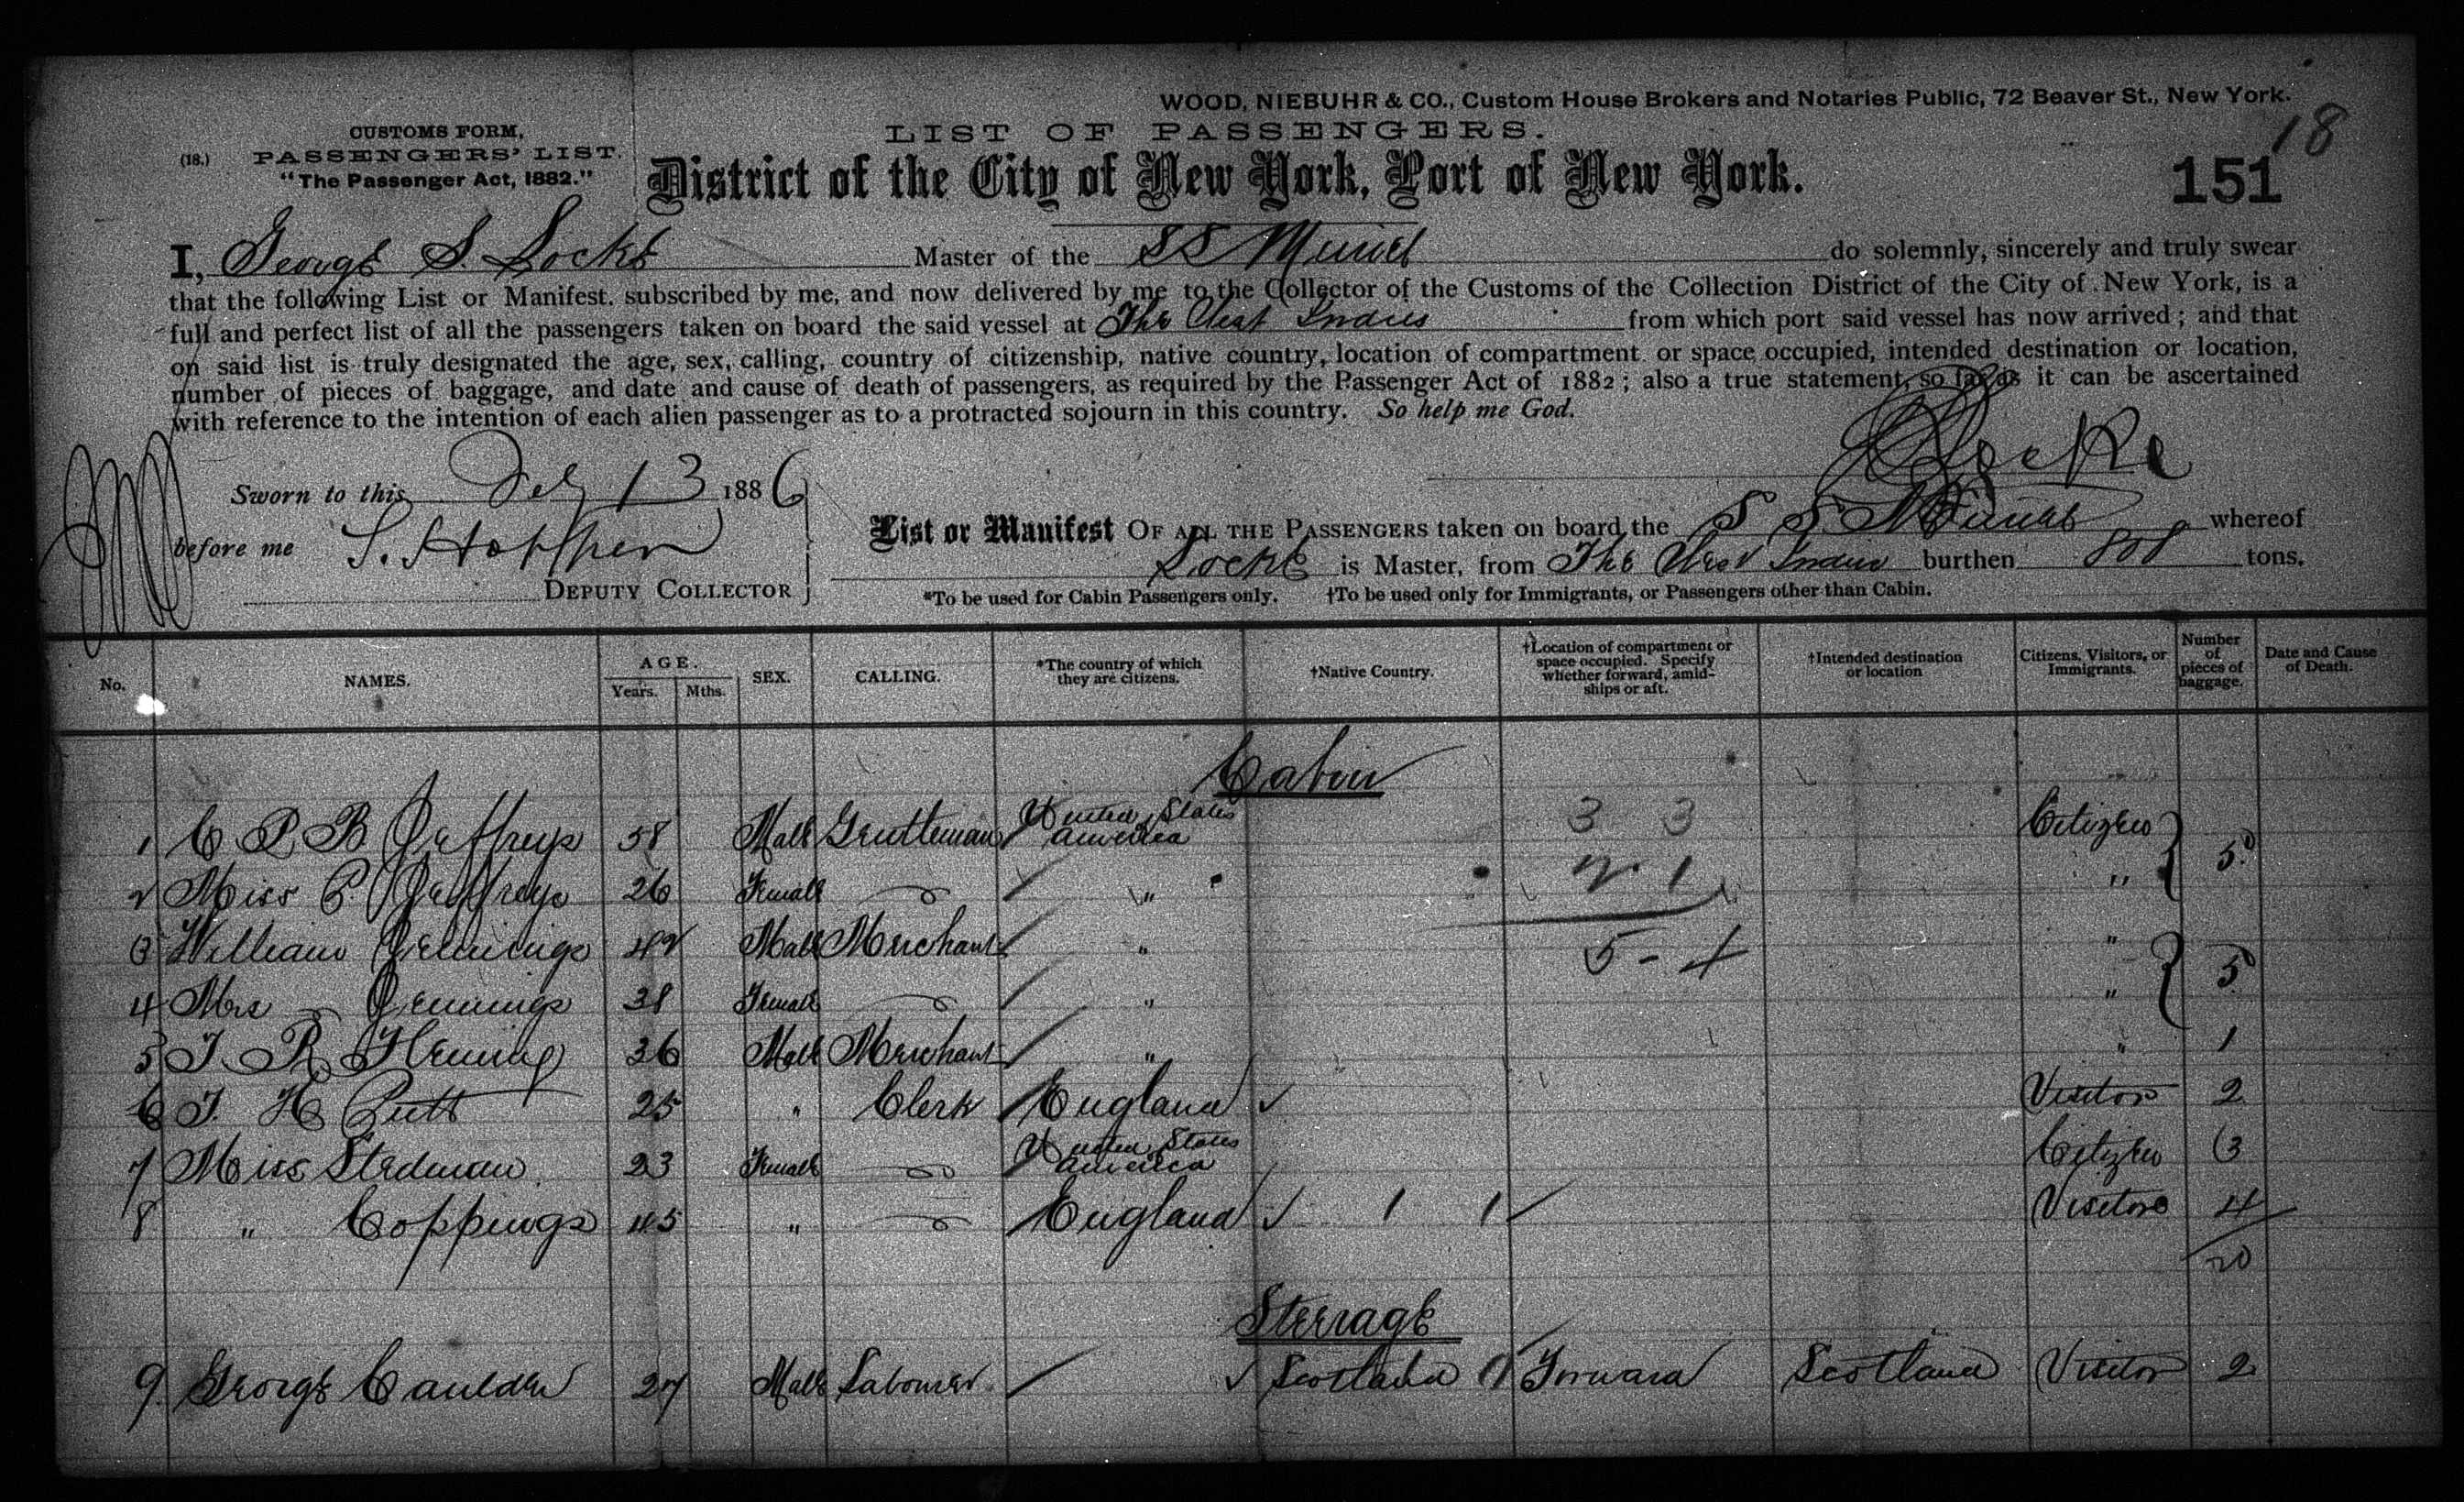 WOOD, NIEBUHR & CO., Custom House Brokers and Notaries Public, 72 Beaver St., New York.
18
CUSTOMS FORM,
(18.) PASSENGERS' LIST.
"The Passenger Act, 1882."
LIST OF PASSENGERS.
District of the City of New York, Port of New York.
151
I, George S. Locke Master of the SS Muriel do solemnly, sincerely and truly swear
that the following List or Manifest. subscribed by me, and now delivered by me to the Collector of the Customs of the Collection District of the City of New York, is a
full and perfect list of all the passengers taken on board the said vessel at The West Indies from which port said vessel has now arrived; and that
on said list is truly designated the age, sex, calling, country of citizenship, native country, location of compartment or space occupied, intended destination or location,
number of pieces of baggage, and date and cause of death of passengers, as required by the Passenger Act of 1882; also a true statement, so far as it can be ascertained
with reference to the intention of each alien passenger as to a protracted sojourn in this country. So help me God.
Locke
Sworn to this 13 1886
before me S. Hopper
DEPUTY COLLECTOR
List or Manifest OF ALL THE PASSENGERS taken on board the S S Muriel whereof
Locke is Master, from The West Indies burthen 808 tons.
*To be used for Cabin Passengers only. †To be used only for Immigrants, or Passengers other than Cabin.
No. NAMES. AGE. Years. Mths. SEX. CALLING. *The country of which they are citizens. †Native Country. †Location of compartment or space occupied. Specify whether forward, amidships or aft. †Intended destination or location Citizens, Visitors, or Immigrants. Number of pieces of baggage. Date and Cause of Death.
Cabin
1 C P B Jeffreys 58 Male Gentleman United States America 3 3 Citizen 5
2 Miss P. Jeffreys 26 Female " 2 1 "
3 William Jennings 42 Male Merchant " 5 - 4 " 5
4 Mrs Jennings 38 Female " "
5 J R Fleming 36 Male Merchant " " 1
6 J. H Pitt 25 " Clerk England ✓ Visitor 2
7 Miss Stedman 23 Female United States America Citizen 3
8 " Coppings 45 " England ✓ 1 1 Visitor 4
20
Steerage
9 George Caulder 27 Male Labourer ✓ Scotland Forward Scotland Visitor 2